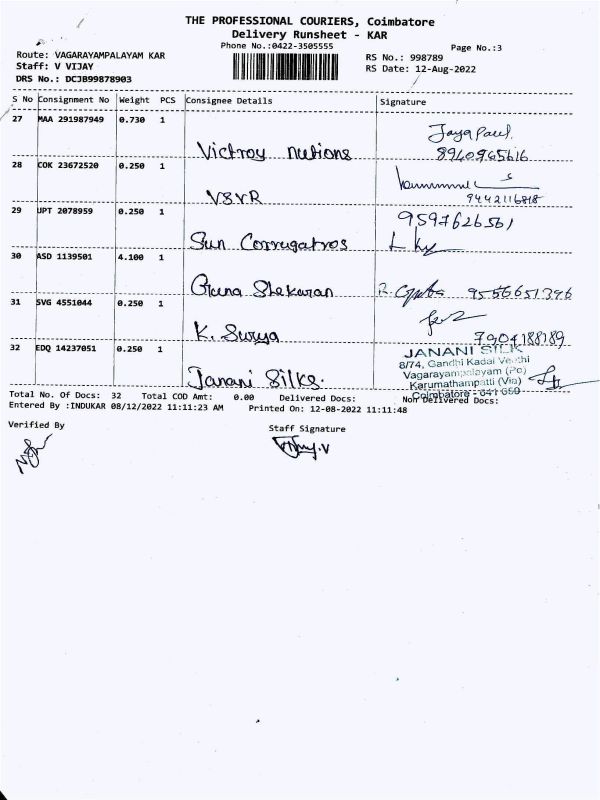 THE PROFESSIONAL COURIERS, Coimbatore
Delivery Runsheet - KAR
Phone No.:0422-3505555
Page No.:3
Route: VAGARAYAMPALAYAM KAR
RS No.: 998789
Staff: V VIJAY
RS Date: 12-Aug-2022
DRS No.: DCJB99878903
S No Consignment No Weight PCS Consignee Details Signature
27 MAA 291987949 0.730 1
Jaya Paul.
Victroy nutions 8940965616
28 COK 23672520 0.250 1
VSVR 9442116818
29 UPT 2078959 0.250 1 9597626561
Sun Corrugatros
30 ASD 1139501 4.100 1
Guna Shekaran 9556651396
31 SVG 4551044 0.250 1
K. Surya 7904188189
32 EDQ 14237051 0.250 1
JANANI SILK
8/74, Gandhi Kadai Veethi
Vagarayampalayam (Po)
Janani Silks. Karumathampatti (Via)
Coimbatore - 641 659
Total No. Of Docs: 32 Total COD Amt: 0.00 Delivered Docs: Non Delivered Docs:
Entered By :INDUKAR 08/12/2022 11:11:23 AM Printed On: 12-08-2022 11:11:48
Verified By
Staff Signature
Vijay.V